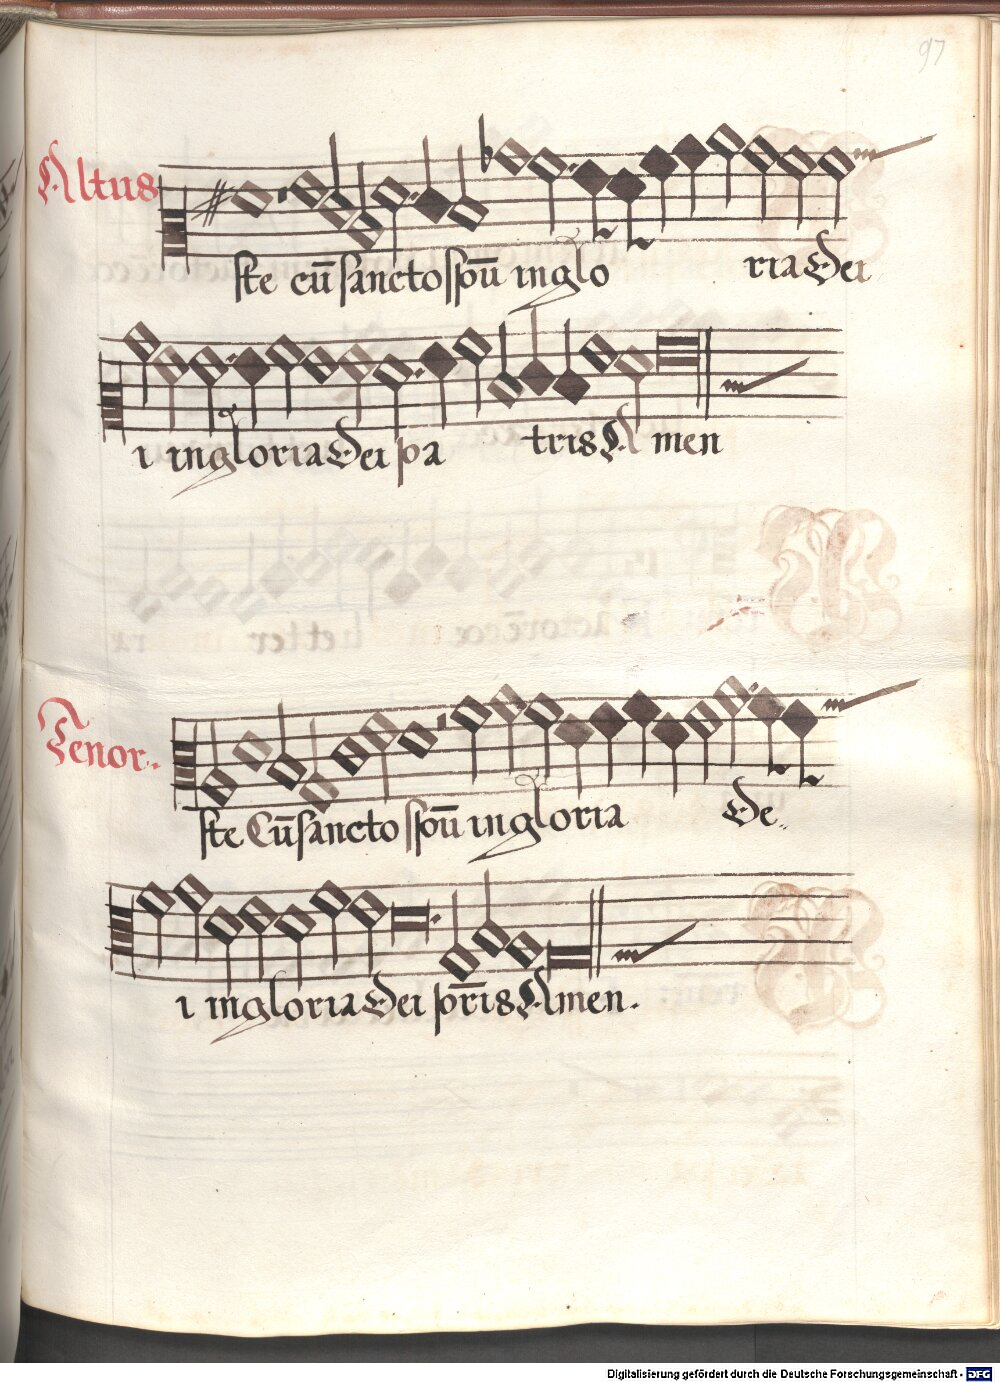 97
Altus
ste cū sancto spū in glo ria Dei
i in gloria Dei pa tris A men
Tenor.
ste Cū sancto spū in gloria De..
i in gloria Dei pr̄is Amen.
Digitalisierung gefördert durch die Deutsche Forschungsgemeinschaft - DFG